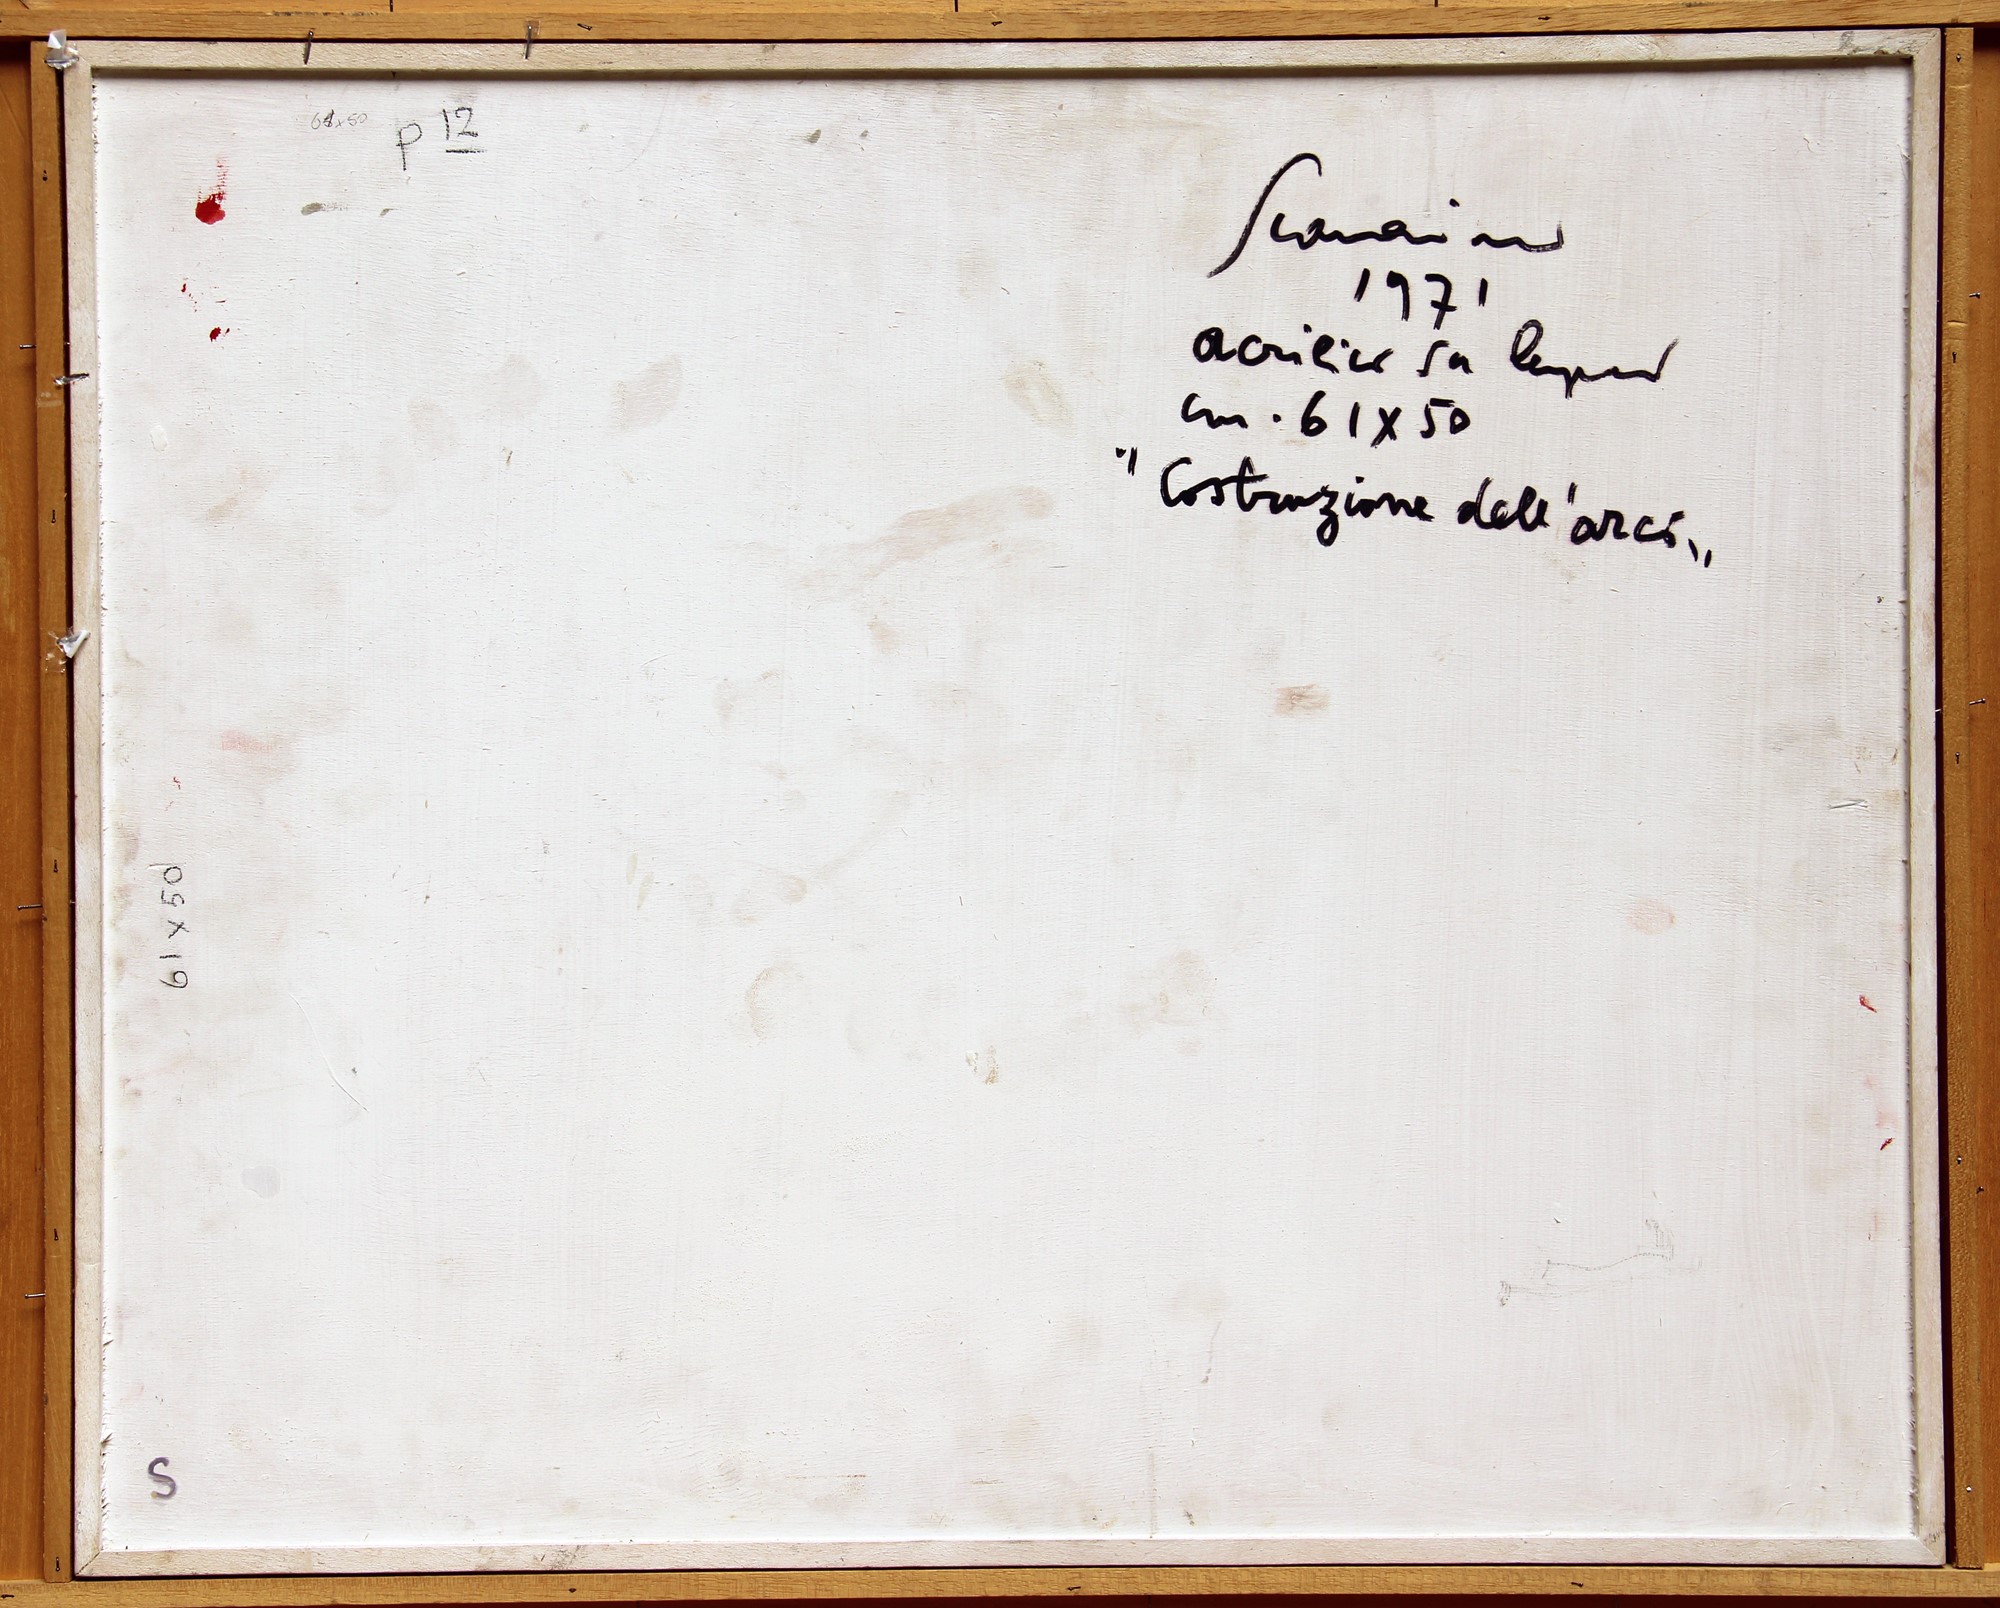 61x50
p 12
Scanavino
1971
acrilico su legno
cm. 61x50
"Costruzione dell'arco"
61x50
S